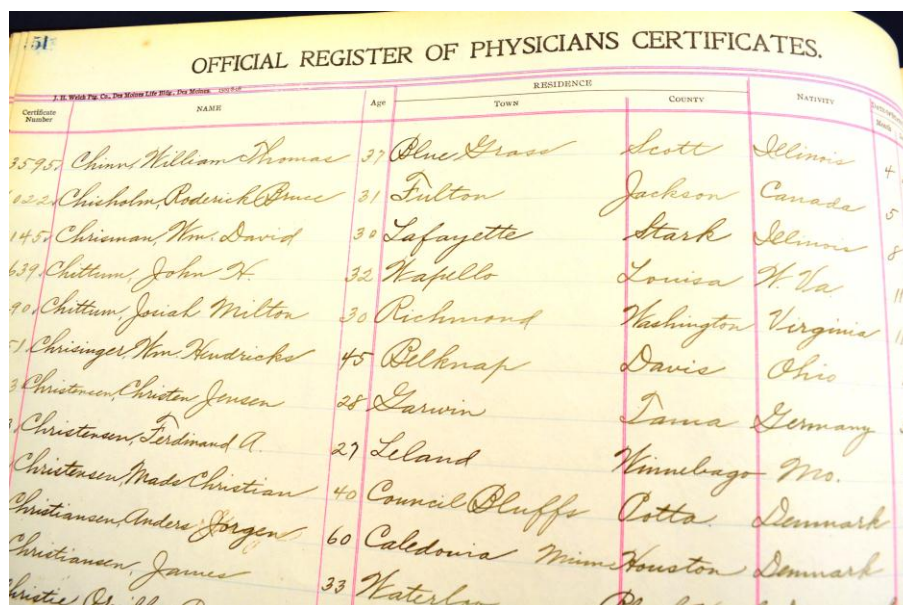 51
OFFICIAL REGISTER OF PHYSICIANS CERTIFICATES.
J. H. Welch Ptg. Co., Des Moines Life Bldg., Des Moines
RESIDENCE
Certificate Number NAME Age TOWN COUNTY NATIVITY Month
3595 Chinn, William Thomas 37 Blue Grass Scott Illinois 4
022 Chisholm, Roderick Bruce 31 Fulton Jackson Canada 5
145 Chrisman, Wm. David 30 Lafayette Stark Illinois 8
639 Chittum, John H. 32 Wapello Louisa W. Va. 11
90 Chittum, Josiah Milton 30 Richmond Washington Virginia
51 Chrisinger Wm. Hendricks 45 Belknap Davis Ohio
3 Christensen, Christen Jensen 28 Garwin Tama Germany
Christensen, Ferdinand A. 27 Leland Winnebago Mo.
Christensen, Mads Christian 40 Council Bluffs Potta. Denmark
Christiansen, Anders Jorgen 60 Caledonia Minn Houston Denmark
Christiansen, James 33 Waterloo
Christie